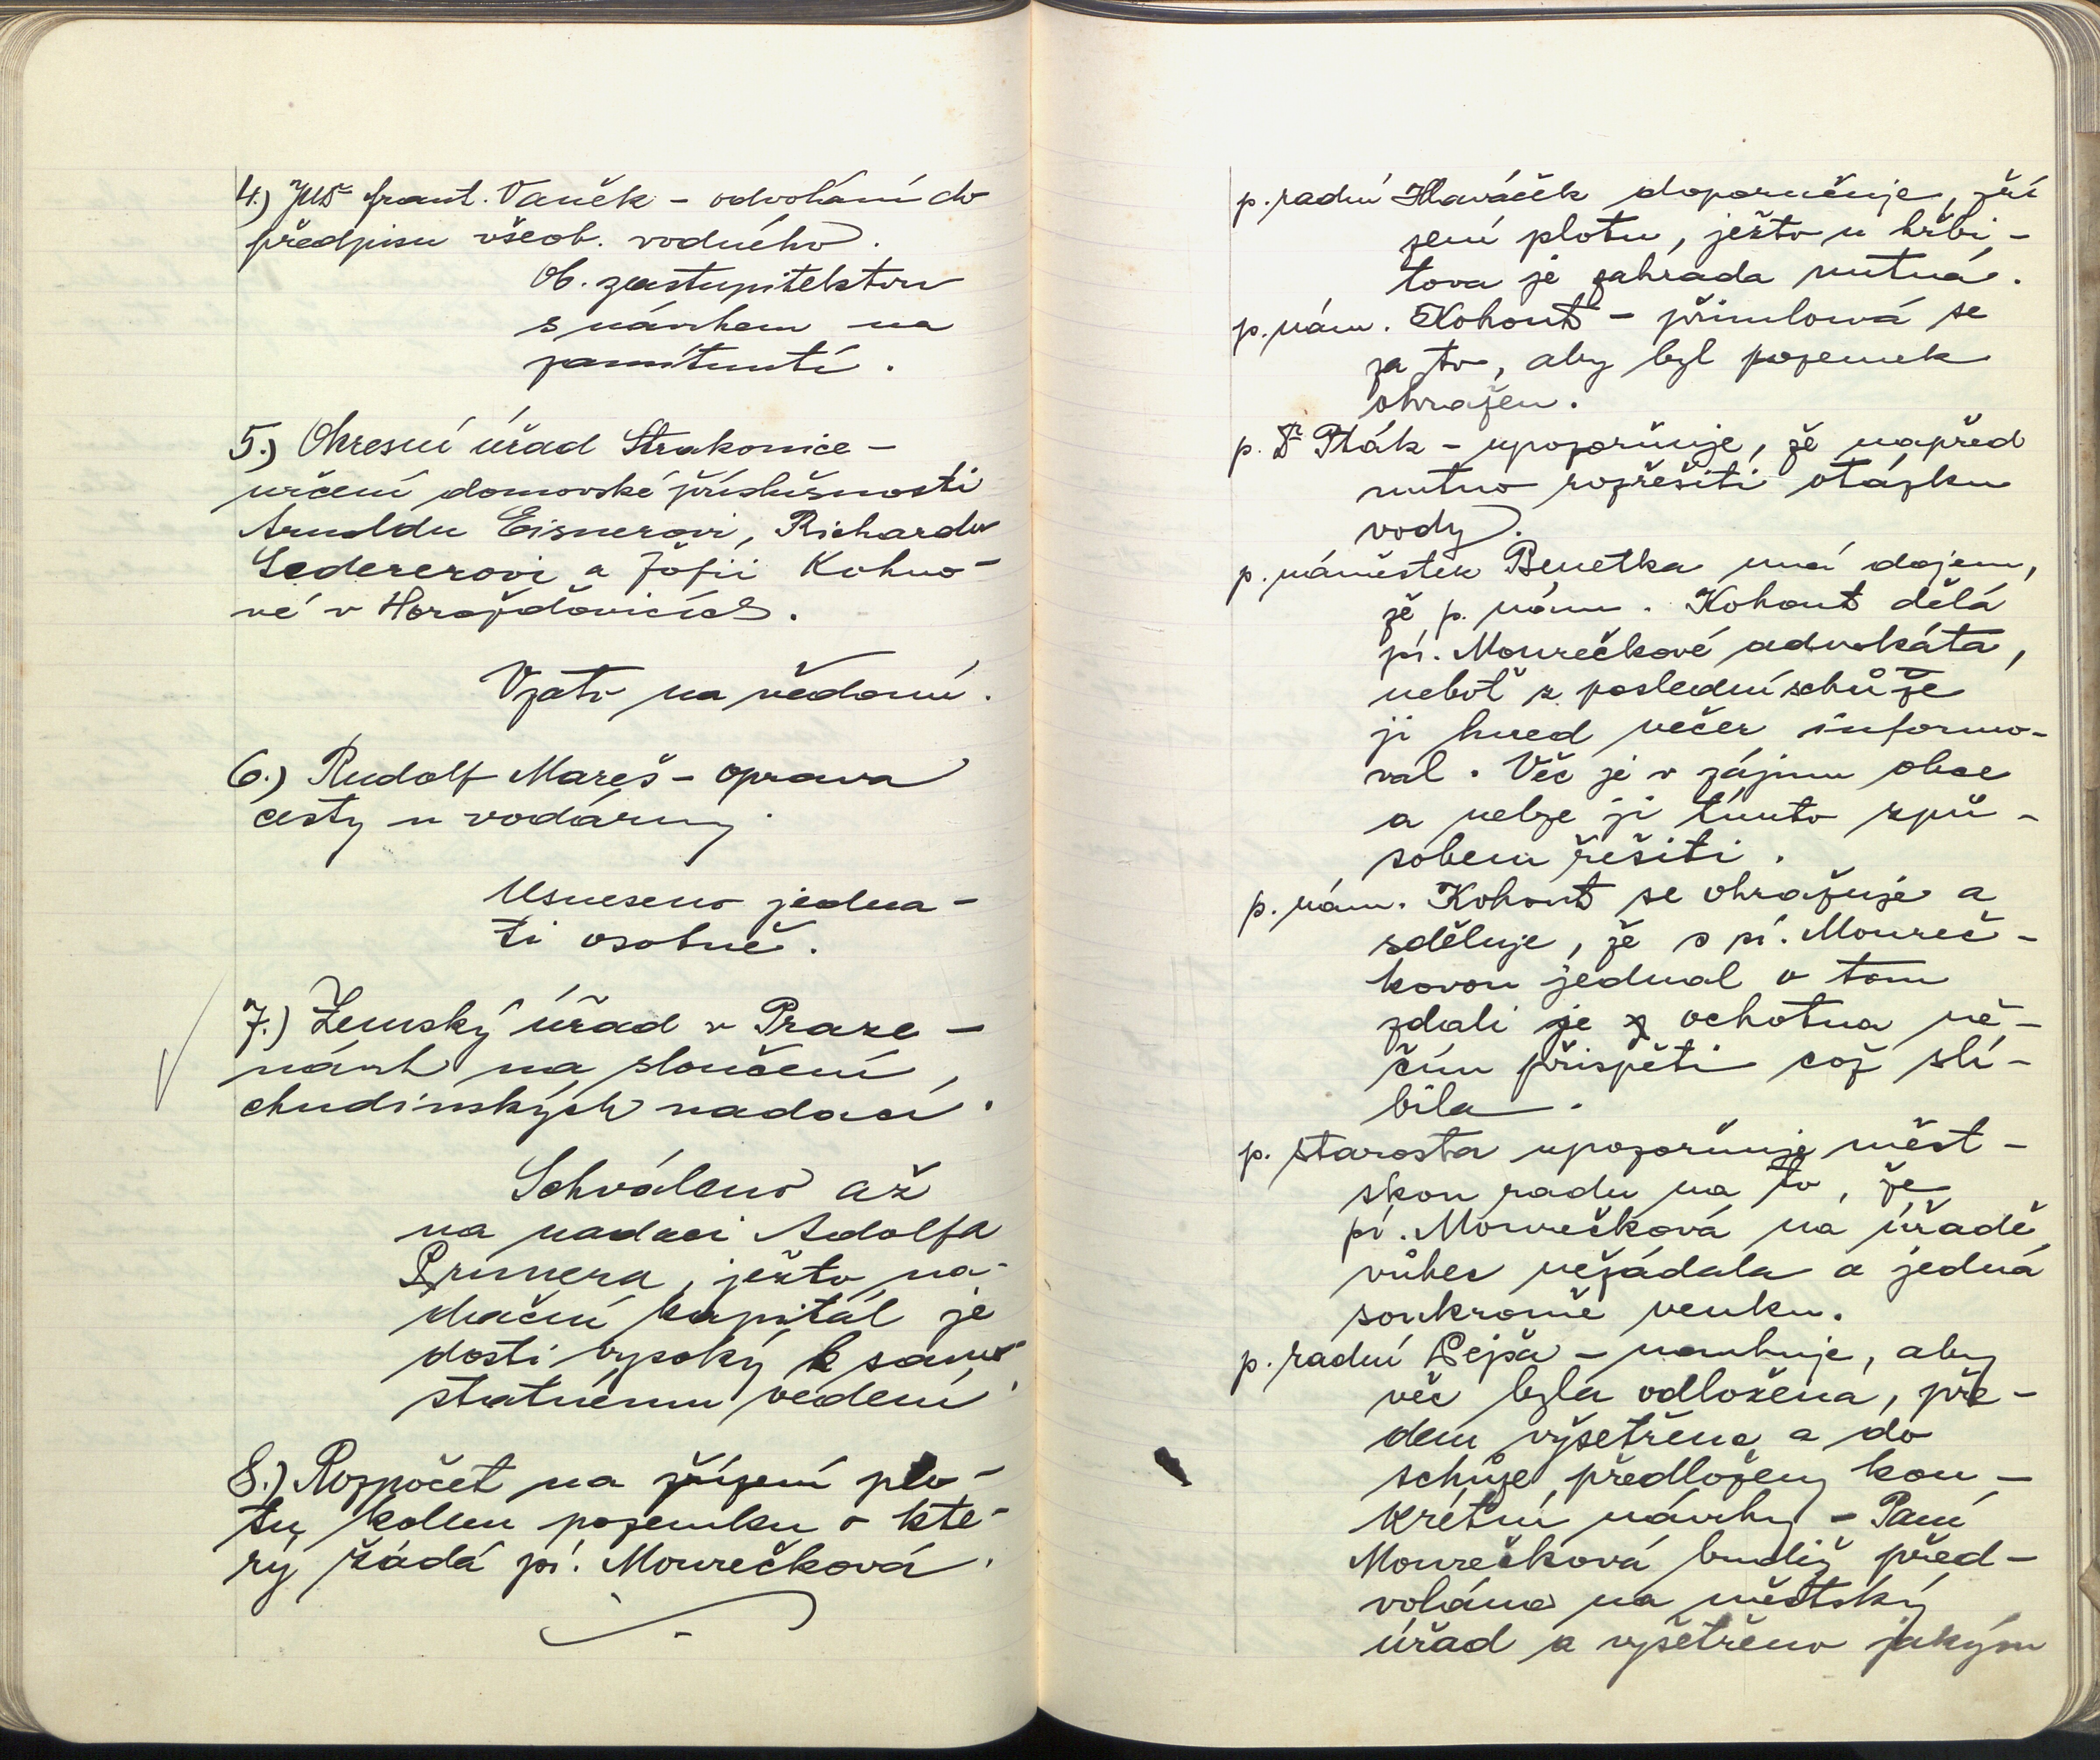 4.) JUDr Frant. Vaněk - odvolání do
předpisu všeob. vodného.
Ob. zastupitelstvu
s návrhem na
zamítnutí.
5.) Okresní úřad Strakonice -
určení domovské příslušnosti
Arnoldu Eisnerovi, Richardu
Ledererovi a Žofii Kohno-
vé v Horažďovicích.
Vzato na vědomí.
6.) Rudolf Mareš - oprava
cesty u vodárny.
Usneseno jedna-
ti osobně.
7.) Zemský úřad v Praze -
návrh na sloučení
chudinských nadací.
Schváleno až
na nadaci Adolfa
, ježto na-
dační kapitál je
dosti vysoký k samo-
statnému vedení.
8.) Rozpočet na zřízení plo-
tu kolem pozemku o kte-
rý žádá pí. Mourečková.
p. radní Hlaváček doporučuje, zří
zení plotu, ježto u hřbi-
tova je zahrada nutná.
p. nám. Kohout - přimlouvá se
za to, aby byl pozemek
ohražen.
p. Dr Pták - upozorňuje, že napřed
nutno rozřešiti otázku
vody.
p. náměstek Benetka má dojem,
že p. nám. Kohout dělá
pí. Mourečkové advokáta,
neboť z poslední schůze
ji hned večer informo-
val. Věc je v zájmu obce
a nelze ji tímto způ-
sobem řešiti.
p. nám. Kohout se ohražuje a
sděluje, že s pí. Moureč-
kovou jednal o tom
zdali je ochotna ně-
čím přispěti což slí-
bila.
p. starosta upozorňuje měst-
skou radu na to, že
pí. Mourečková na úřadě
vůbec nežádala a jedná
soukromě venku.
p. radní Lejsa - navrhuje, aby
věc byla odložena, pře-
dem vyšetřena a do
schůze předloženy kon-
krétní návrhy - Paní
Mourečková budiž před-
volána na městský
úřad a vyšetřeno jakým